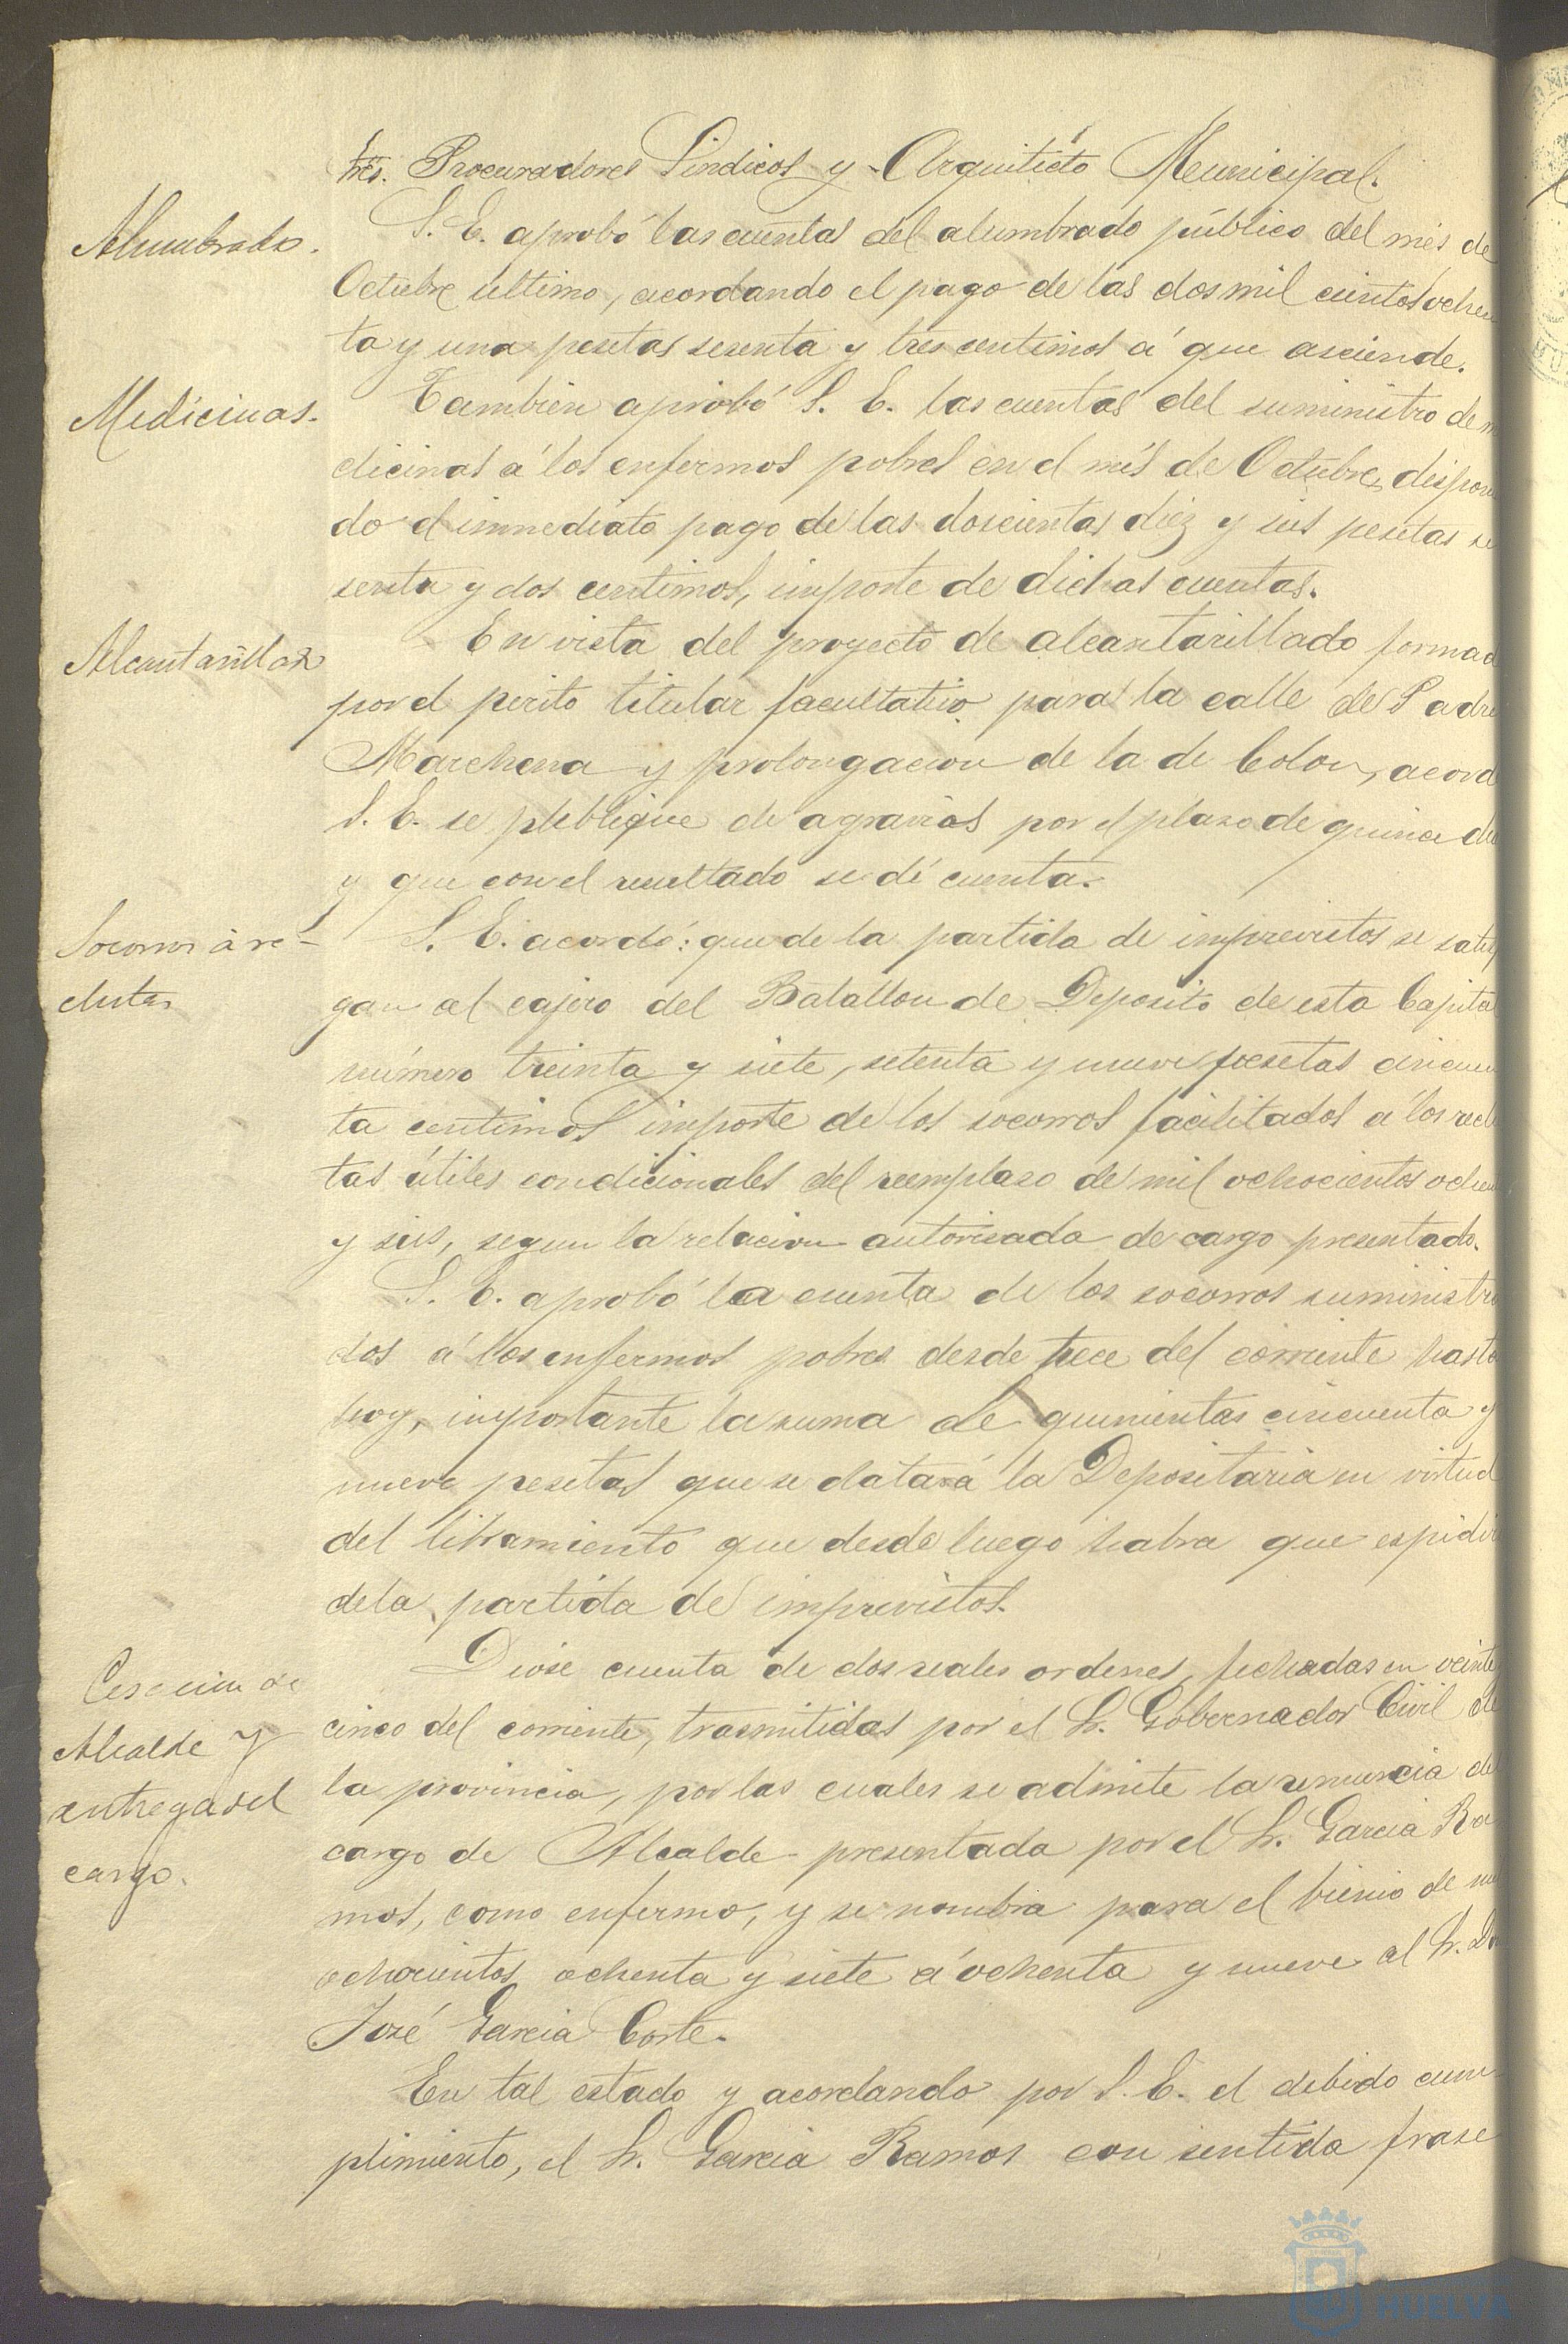 Sres. Procuradores Sindicos y Arquitecto Municipal.
Alumbrado.
S. E. aprobó las cuentas del alumbrado público del més de
Octubre último, acordando el pago de las dos mil cientos ochen
ta y una pesetas sesenta y tres centimos á que asciende.
Medicinas.
Tambien aprobó S. E. las cuentas del suministro de m
dicinas á los enfermos pobres en el més de Octubre, dispon
do el inmediato pago de las doscientas diez y seis pesetas se
senta y dos centimos, importe de dichas cuentas.
Alcantarillas
En vista del proyecto de alcantarillado formad
por el perito titular facultativo para la calle de Padre
Marchena y prolongacion de la de Colon, acord
S. E. se publique de agravios por el plazo de quince di
y que con el resultado se dé cuenta.
Socorros à re-
clutas
S. E. acordó: que de la partida de imprevistos se satisf
gan al cajero del Batallon de Deposito de esta Capital
número treinta y siete, setenta y nueve pesetas cincuen
ta centimos importe de los socorros facilitados á los recl
tas útiles condicionales del reemplazo de mil ochocientos ochen
y seis, segun la relacion autorizada de cargo presentado.
S. E. aprobó la cuenta de los socorros suministra
dos á los enfermos pobres desde trece del corriente hasta
hoy, importante la suma de quinientas cincuenta y
nueve pesetas que se datará la Depositaria en virtud
del libramiento que desde luego habra que espidir
de la partida de imprevistos.
Cesacion de
Alcalde y
entrega del
cargo.
Diose cuenta de dos reales ordenes, fechadas en veinte
cinco del corriente, trasmitidas por el Sr. Gobernador Civil de
la provincia, por las cuales se admite la renuncia del
cargo de Alcalde presentada por el Sr. Garcia Ra
mos, como enfermo, y se nombra para el bienio de mil
ochocientos ochenta y siete á ochenta y nueve al Sr. Dn
José Garcia Corte.
En tal estado y acordando por S. E. el debido cum
plimiento, el Sr. Garcia Ramos con sentida frase
HUELVA